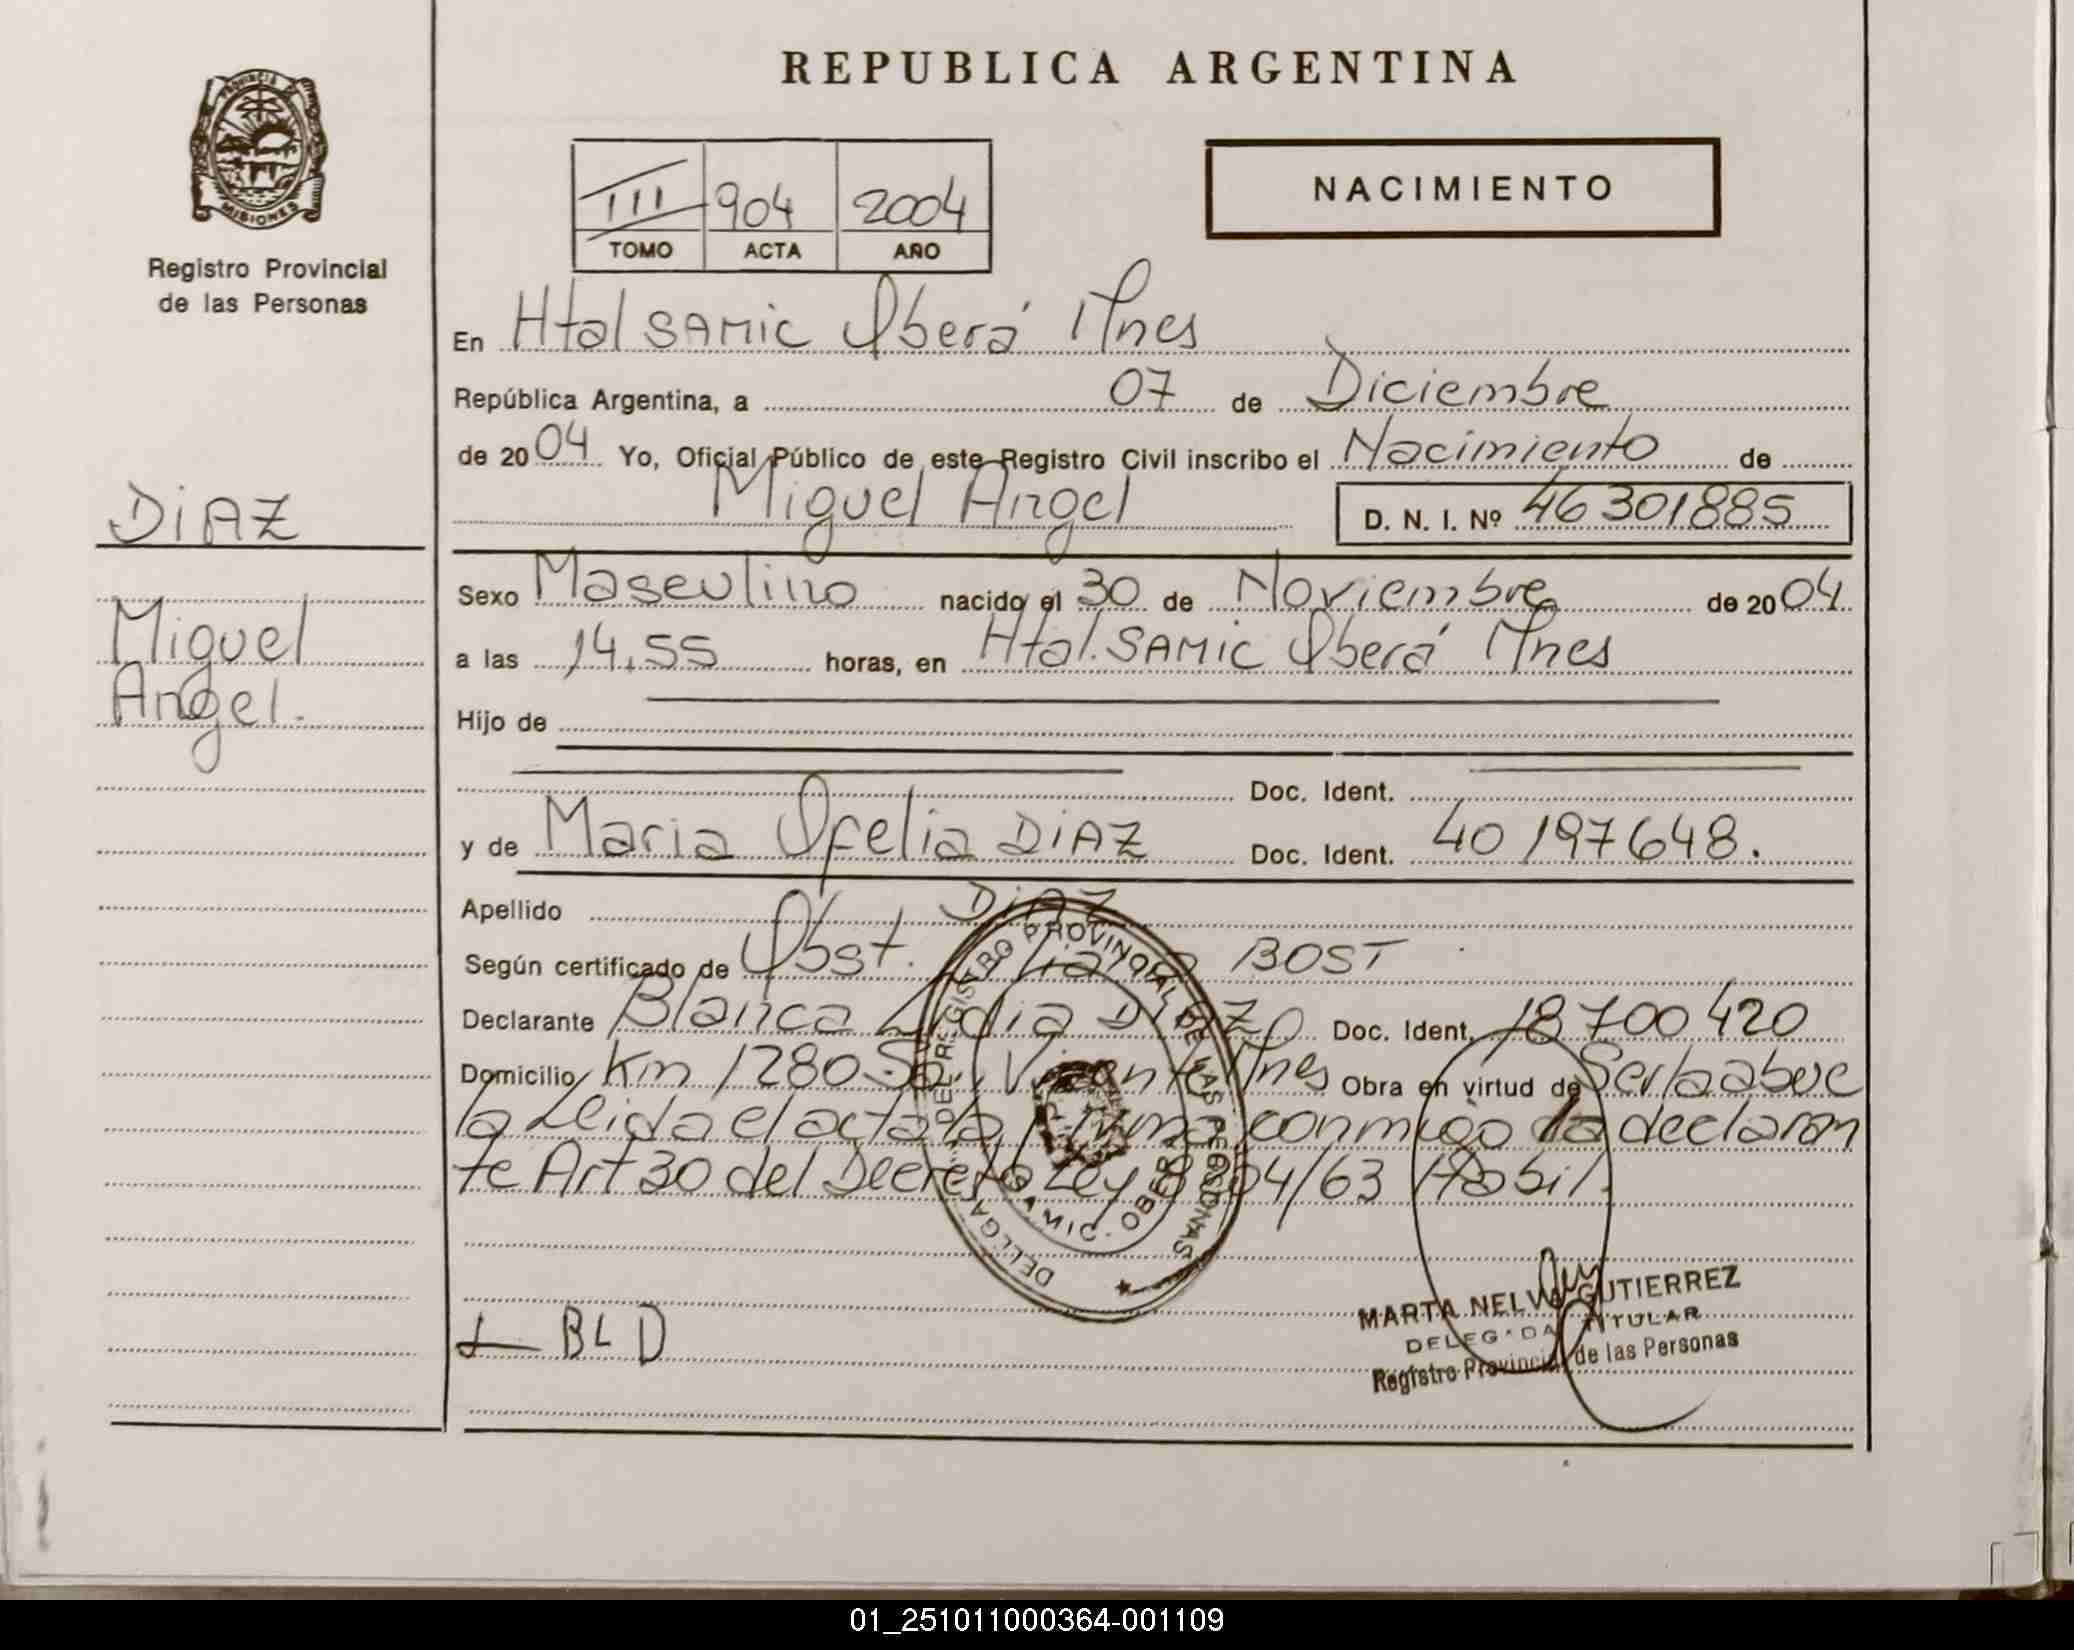 REPUBLICA ARGENTINA
PROVINCIA DE
MISIONES
Registro Provincial
de las Personas
III 904 2004
TOMO ACTA AÑO
NACIMIENTO
En Htal SAMIC Oberá Mnes
República Argentina, a 07 de Diciembre
de 2004 Yo, Oficial Público de este Registro Civil inscribo el Nacimiento de
Miguel Angel D. N. I. Nº 46301885
DiAZ
Miguel
Angel.
Sexo Masculino nacido el 30 de Noviembre de 2004
a las 14.55 horas, en Htal. SAMIC Oberá Mnes
Hijo de
Doc. Ident.
y de Maria Ofelia DiAZ Doc. Ident. 40197648.
Apellido DiAZ
Según certificado de Obst. BOST
Declarante Blanca Lidia DiAZ Doc. Ident. 18700420
Domicilio Km 1280 San Vicente Mnes Obra en virtud de Ser la abue
la Leida el acta la firma conmigo la declaran
te Art 30 del Decreto Ley 8204/63 Habil.
DELEGA REGISTRO PROVINCIAL DE LAS PERSONAS
SAMIC - OBERA
BLD
MARTA NELVA GUTIERREZ
DELEGADA TITULAR
Registro Provincial de las Personas
01_251011000364-001109